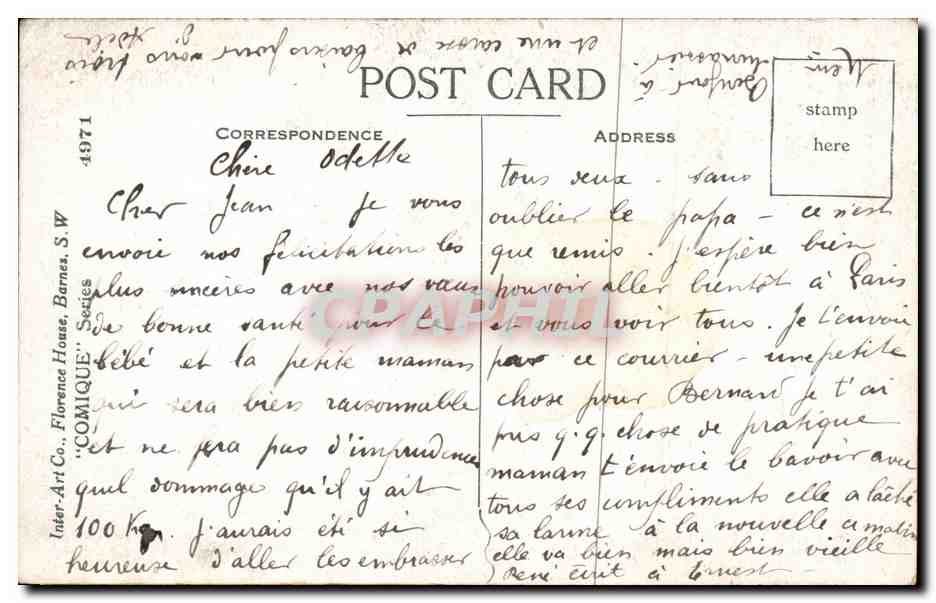 POST CARD
CORRESPONDENCE
ADDRESS
stamp
here
Inter-Art Co., Florence House, Barnes, S.W
"COMIQUE" Series
4971
CPAPHIL
Chère Odette
Cher Jean. Je vous
envoie nos félicitations les
plus sincères avec nos vœux
de bonne santé pour le
bébé et la petite maman
qui sera bien raisonnable
et ne fera pas d'imprudence
quel dommage qu'il y ait
100 Km. J'aurais été si
heureuse d'aller les embrasser
tous deux. sans
oublier le papa - ce n'est
que remis. J'espère bien
pouvoir aller bientôt à Paris
et vous voir tous. Je t'envoie
par ce courrier - une petite
chose pour Bernard je t'ai
pris q.q. chose de pratique
maman t'envoie le bavoir avec
tous ses compliments elle a lâché
sa larme à la nouvelle ce matin
elle va bien mais bien vieille
René écrit à Ernest
Bonjour à
et une caisse de baisers pour vous trois
Adèle